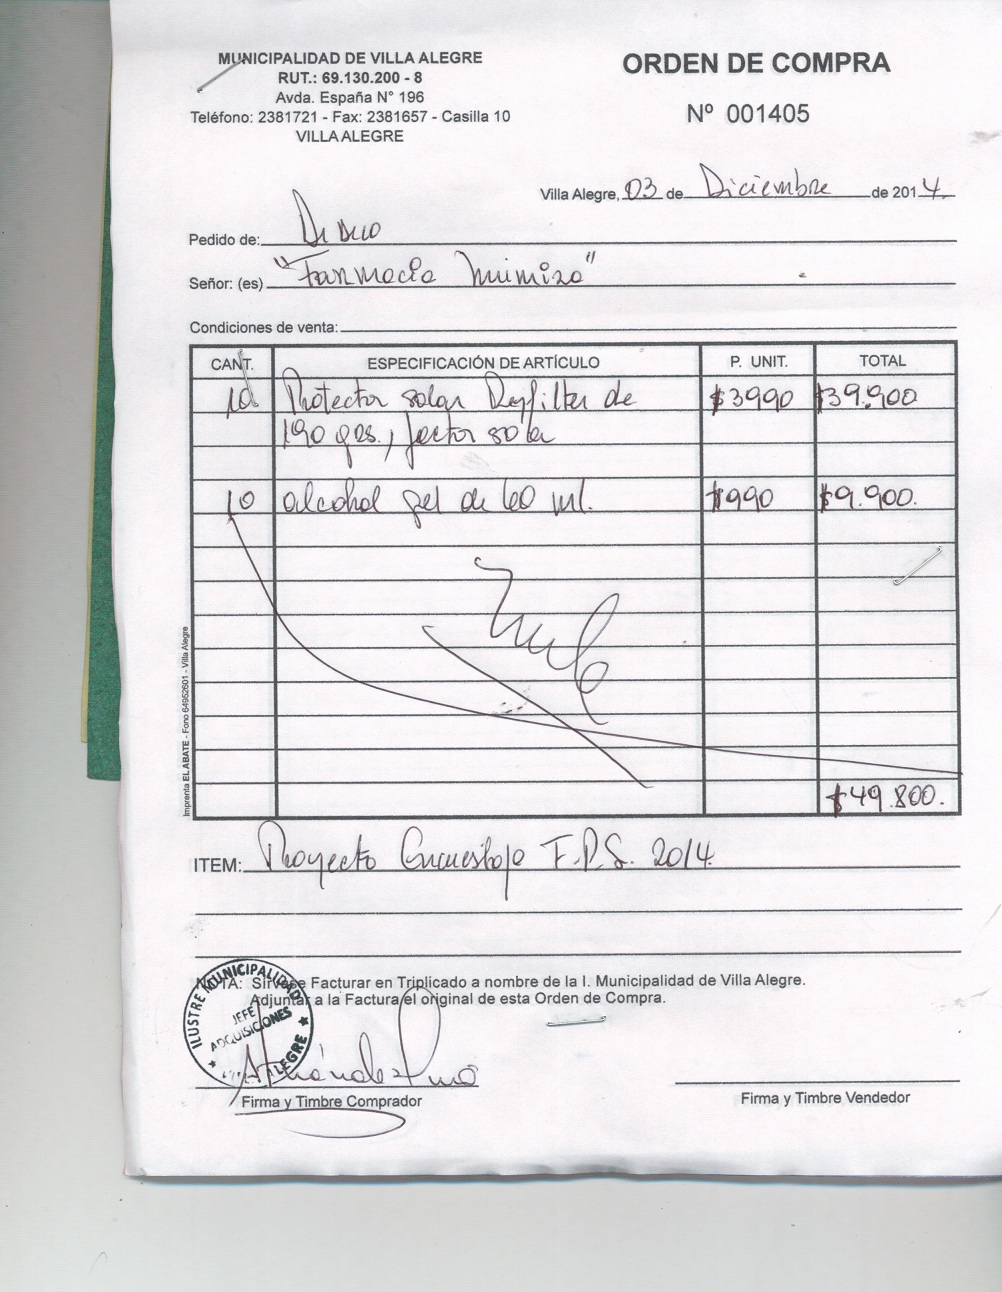 MUNICIPALIDAD DE VILLA ALEGRE
RUT.: 69.130.200 - 8
Avda. España N° 196
Teléfono: 2381721 - Fax: 2381657 - Casilla 10
VILLA ALEGRE
ORDEN DE COMPRA
Nº 001405
Villa Alegre, 03 de Diciembre de 2014.
Pedido de: Dideco
Señor: (es) "Farmacia Mimisa"
Condiciones de venta:
CANT. ESPECIFICACIÓN DE ARTÍCULO P. UNIT. TOTAL
10 Protector solar Rayfilter de $3990 $39.900
190 grs., factor
10 alcohol gel de 60 ml. $990 $9.900.
$49.800.
Imprenta EL ABATE - Fono 64952601 - Villa Alegre
ITEM: Proyecto Encuestaje F.P.S. 2014.
NOTA: Sírvase Facturar en Triplicado a nombre de la I. Municipalidad de Villa Alegre.
Adjuntar a la Factura el original de esta Orden de Compra.
ILUSTRE MUNICIPALIDAD
JEFE
ADQUISICIONES
VILLA ALEGRE
Firma y Timbre Comprador
Firma y Timbre Vendedor